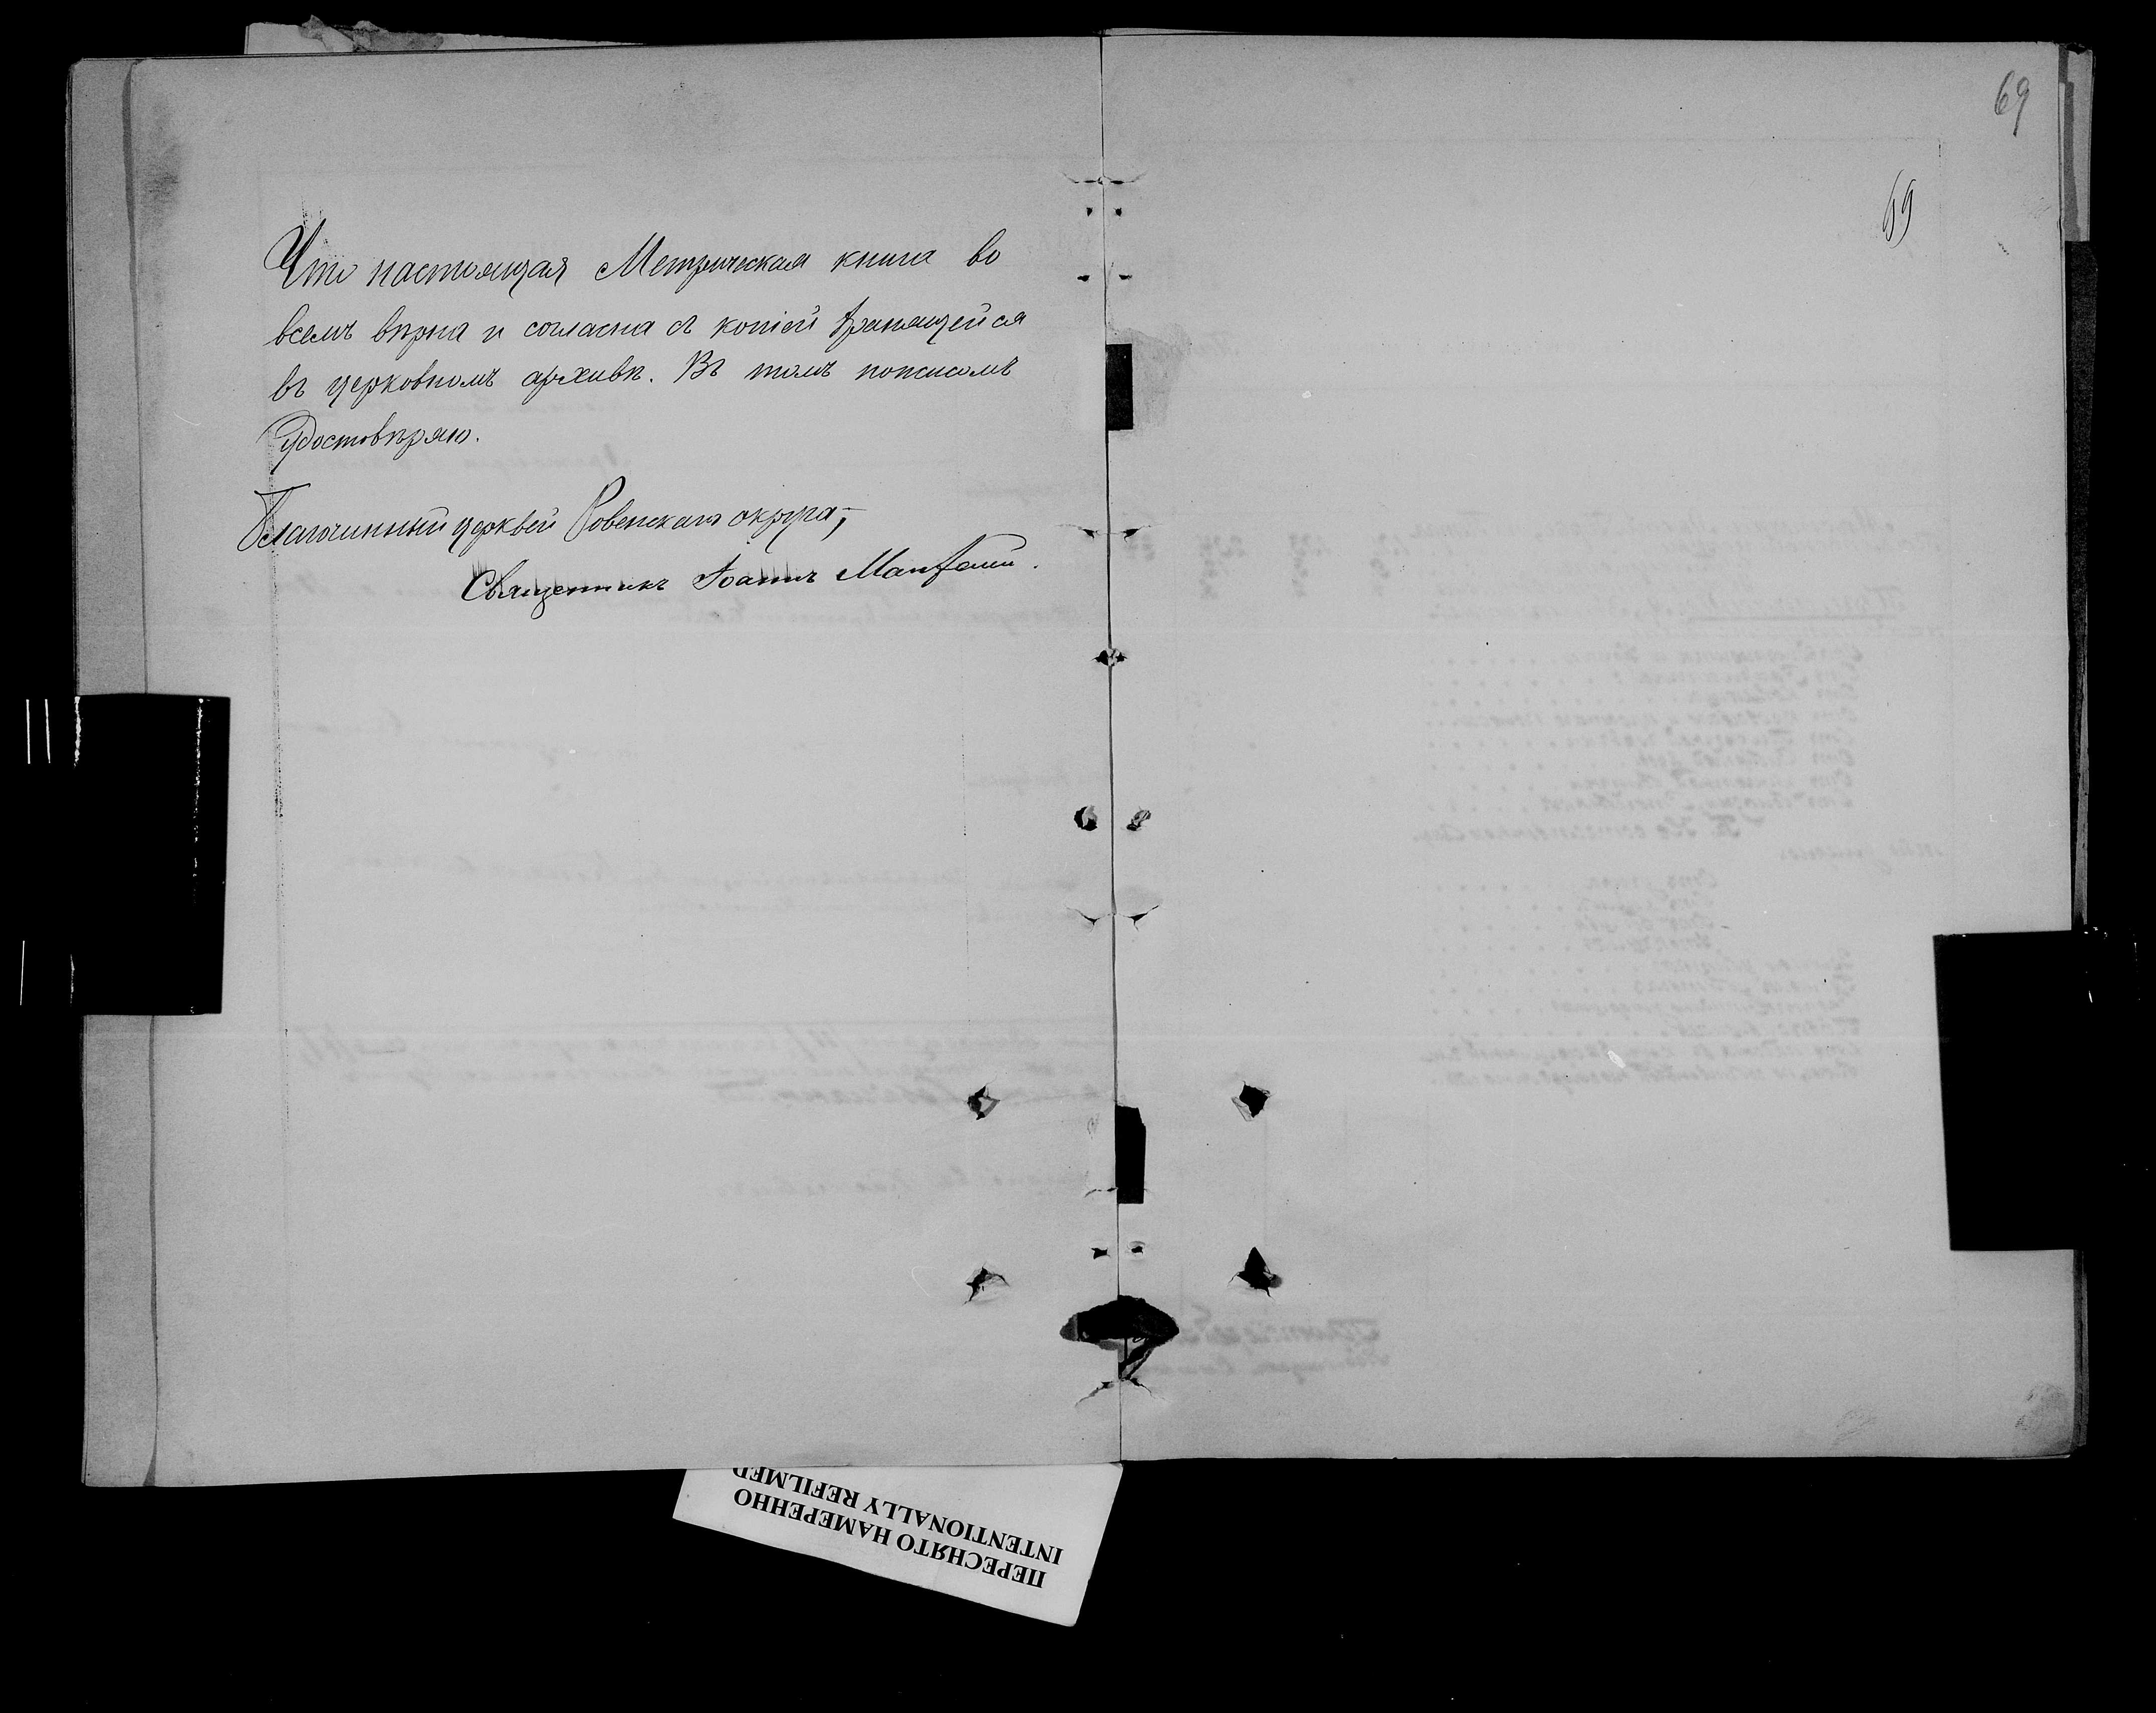 Что настоящая Метрическая книга во
всемъ вѣрна и согласна съ копіей хранящейся
въ церковномъ архивѣ. Въ томъ
удостовѣряю.
Благочинный церквей Ровенскаго округа,
Священникъ Іоаннъ
69
69
ПЕРЕСНЯТО НАМЕРЕННО
INTENTIONALLY REFILMED